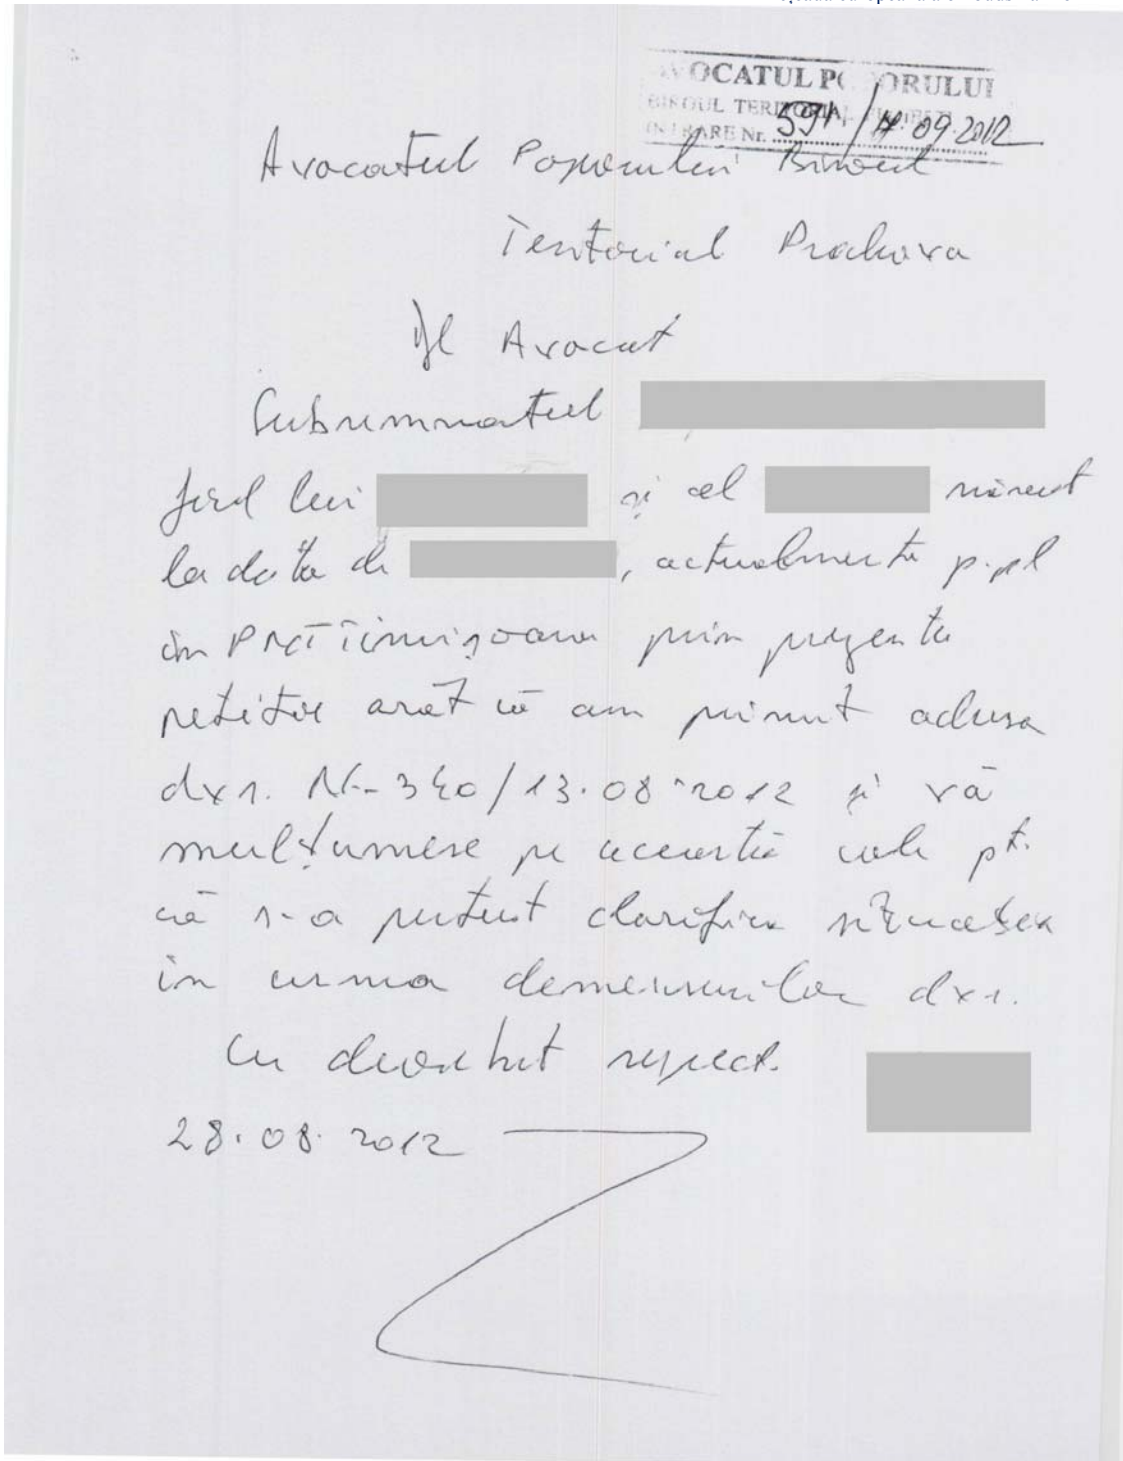 AVOCATUL POPORULUI
BIROUL TERITORIAL
INTRARE Nr. 591 / 14.09.2012
Avocatul Poporului Biroul
Teritorial Prahova
Dl Avocat
Subsemnatul
fiul lui și al născut
la data de , actualmente p.pl
în PMT Timișoara prin prezenta
petiție arăt că am primit adresa
dvs. Nr. 340/13.08.2012 și vă
mulțumesc pe această cale pt.
că s-a putut clarifica situația
în urma demersurilor dvs.
Cu deosebit respect.
28.08.2012